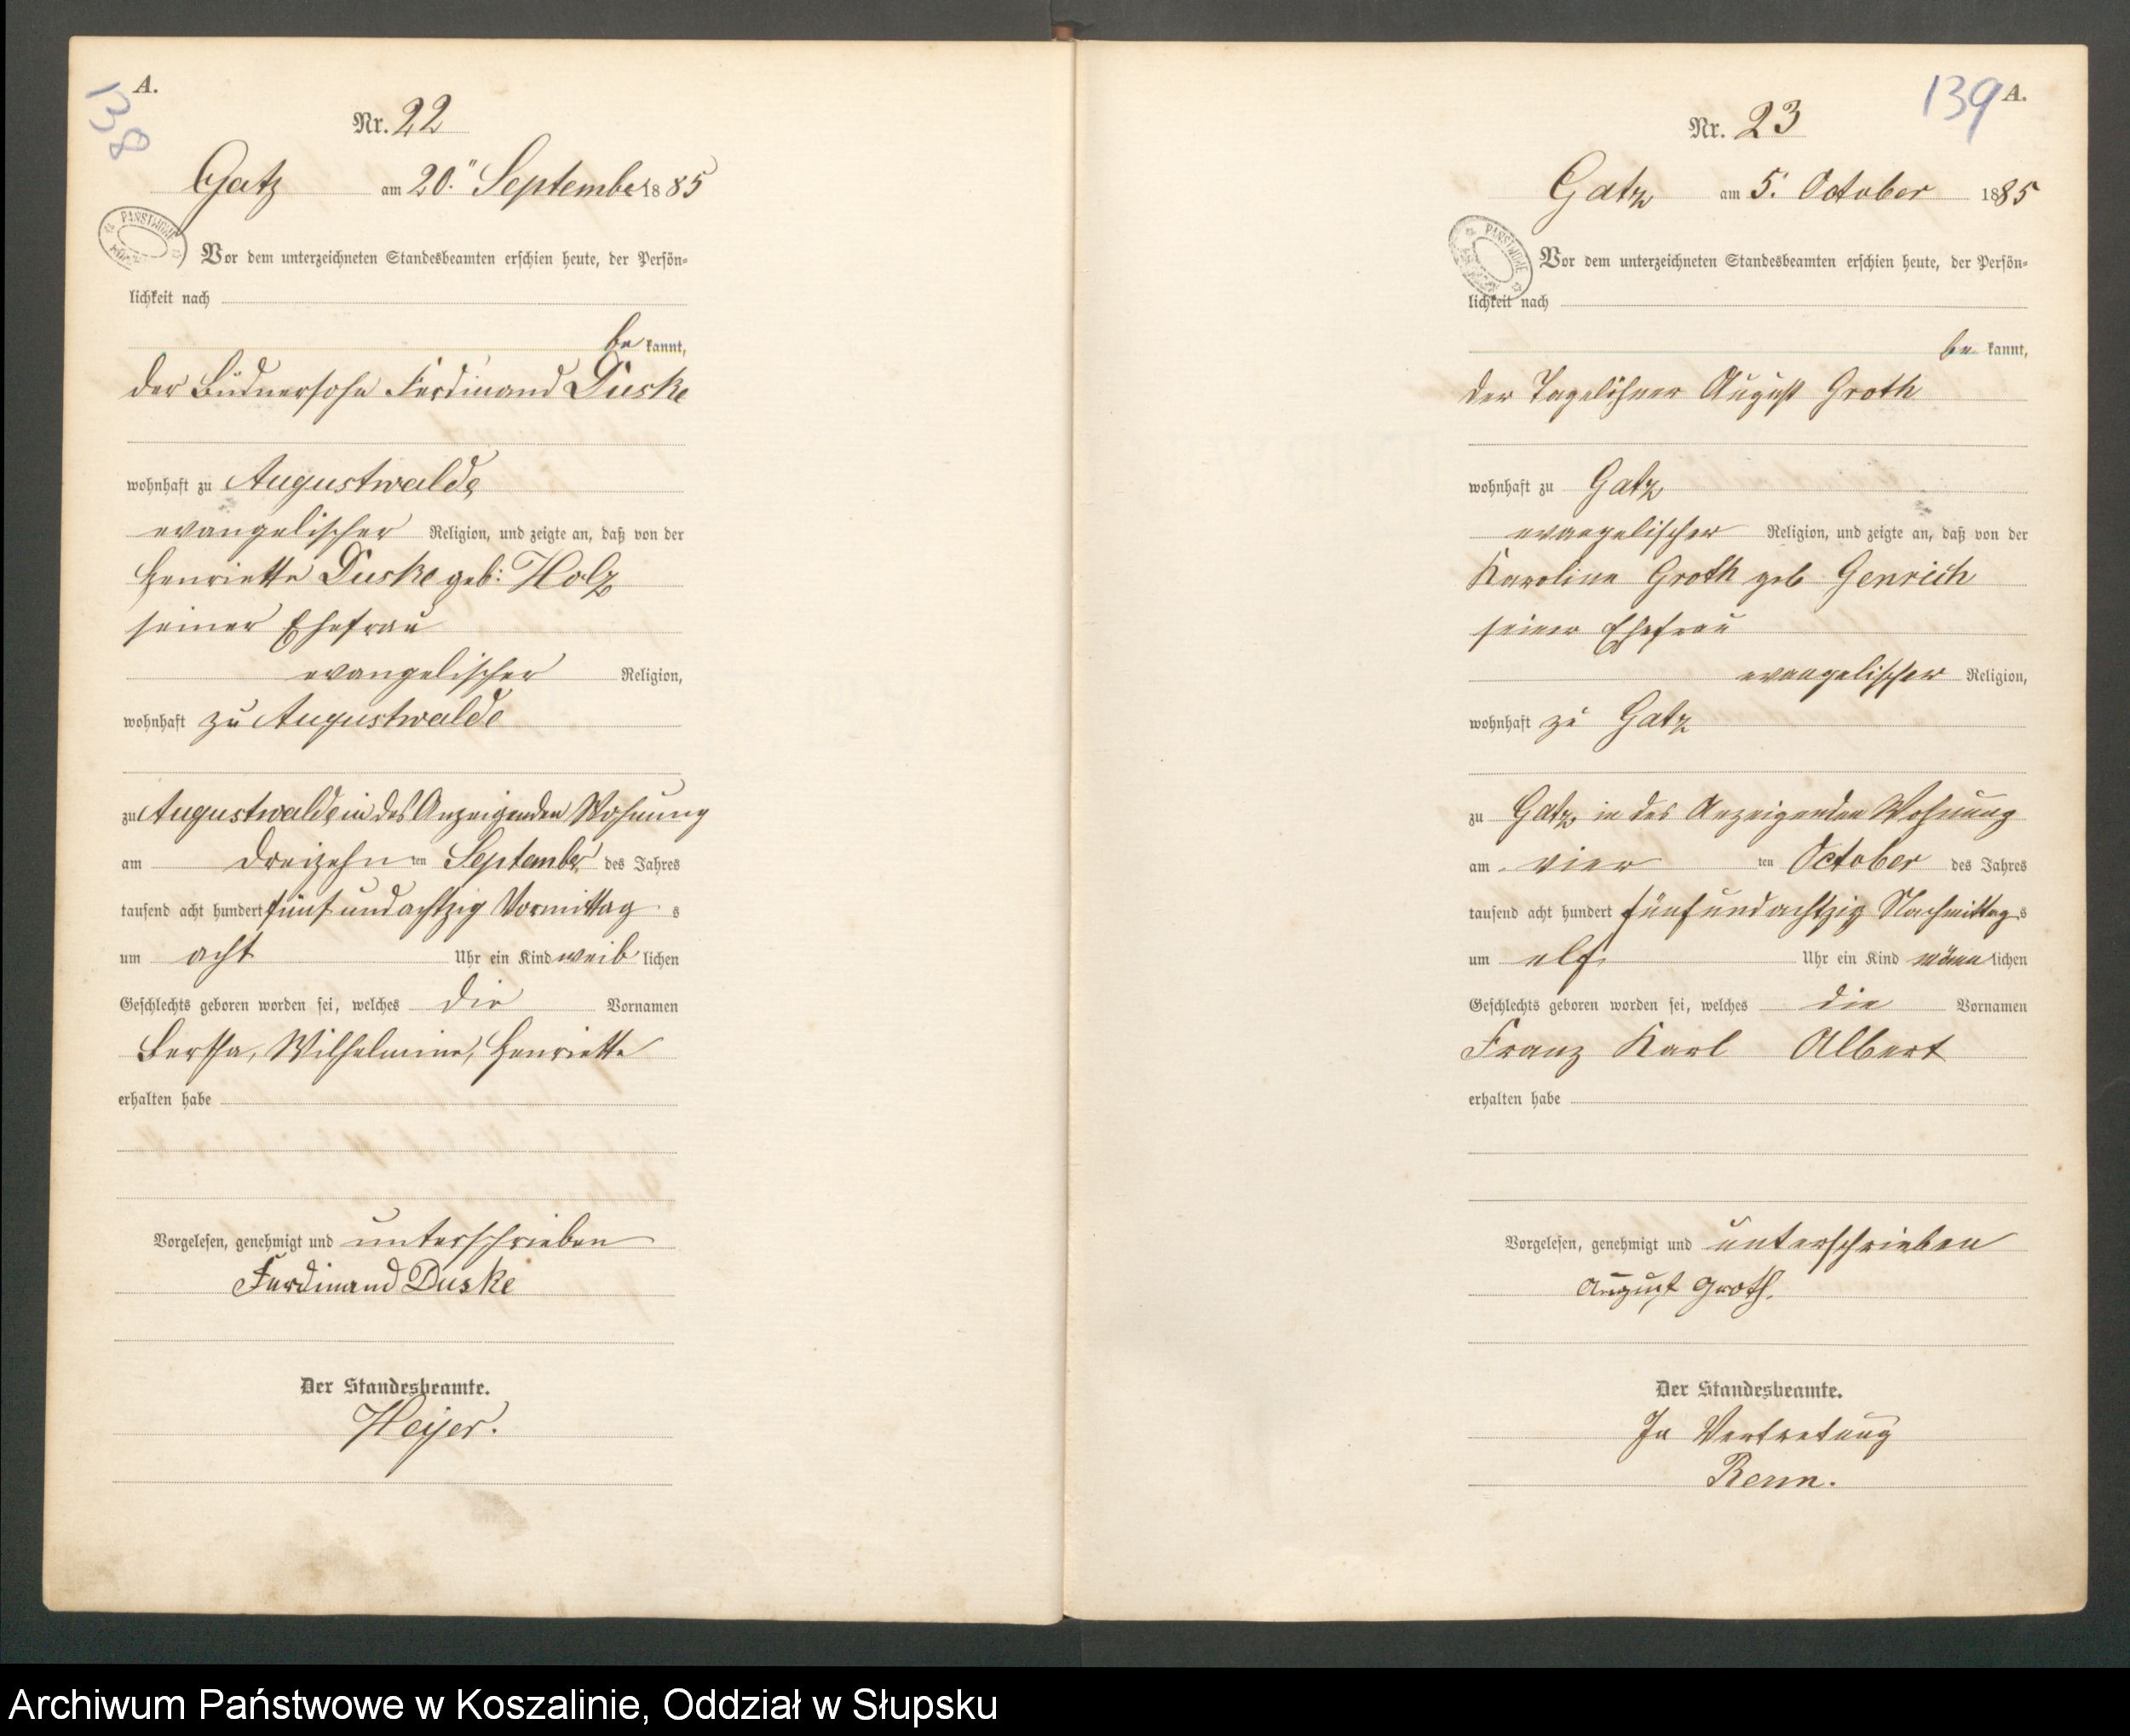 A.
138
Nr. 22
Gatz am 20." September 1885
PAŃSTWOWE
Vor dem unterzeichneten Standesbeamten erschien heute, der Persön-
lichkeit nach
be kannt,
der Büdnersohn Ferdinand Duske
wohnhaft zu Augustwalde
evangelischer Religion, und zeigte an, daß von der
Henriette Duske geb: Holz
seiner Ehefrau
evangelischer Religion,
wohnhaft zu Augustwalde
zu Augustwalde in des Anzeigenden Wohnung
am dreizehn ten September des Jahres
tausend acht hundert fünf und achtzig Vormittag s
um acht Uhr ein Kind weib lichen
Geschlechts geboren worden sei, welches die Vornamen
Bertha, Wilhelmine, Henriette
erhalten habe
Vorgelesen, genehmigt und unterschrieben
Ferdinand Duske
Der Standesbeamte.
Heyer.
139 A.
Nr. 23
Gatz am 5. October 1885
PAŃSTWOWE
Vor dem unterzeichneten Standesbeamten erschien heute, der Persön-
lichkeit nach
be kannt,
der Tagelöhner August Groth
wohnhaft zu Gatz
evangelischer Religion, und zeigte an, daß von der
Karoline Groth geb Genrich
seiner Ehefrau
evangelischer Religion,
wohnhaft zu Gatz
zu Gatz in des Anzeigenden Wohnung
am vier ten October des Jahres
tausend acht hundert fünf und achtzig Nachmittag s
um elf Uhr ein Kind männ lichen
Geschlechts geboren worden sei, welches die Vornamen
Franz Karl Albert
erhalten habe
Vorgelesen, genehmigt und unterschrieben
August Groth.
Der Standesbeamte.
In Vertretung
Renn.
Archiwum Państwowe w Koszalinie, Oddział w Słupsku